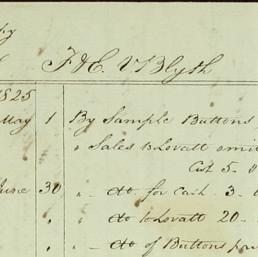 py
F & C. V Blyth
1825
May 1 By Sample Buttons
" Sales to Lovatt omit
Cut 5 - 0
June 30 " - do - for Cash 3 -
" " do to Lovatt 20 -
" " - do - of Buttons pr